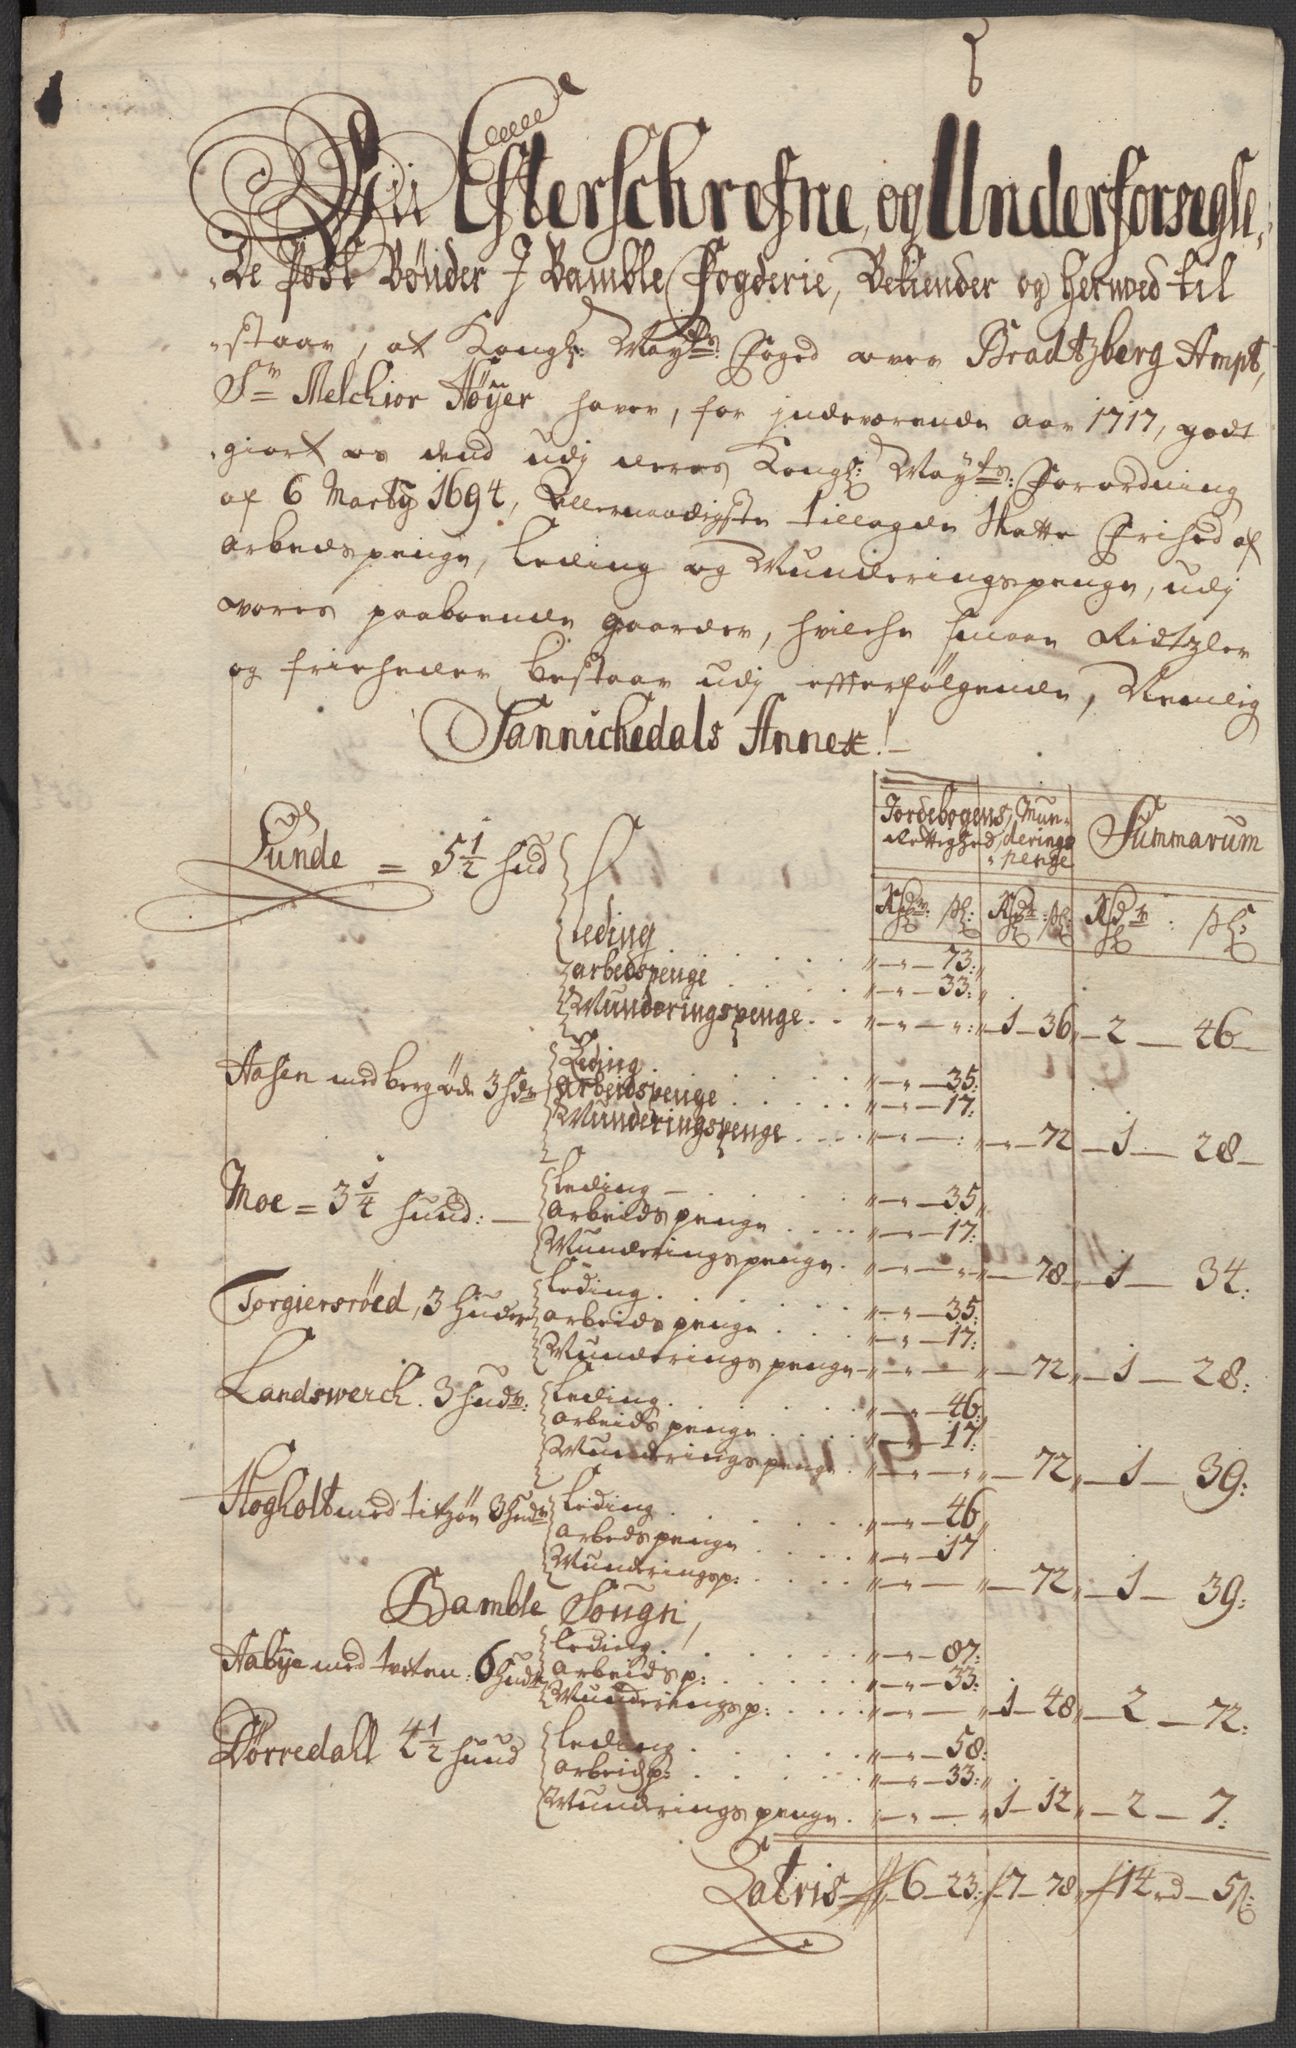 Wii Efterschrefne, og Underforsegle,,
,,de Post Bønder J Bamble Fogderie, Bekiender og herved til
,,staar, at Kongl: Mayts: Foged over Bradtzberg Ampt,
Sr Melchior Høyer haver, for indeværende aar 1717, godt
,,giort os dend udj deres Kongl: Mayts: Forordning
af 6 Marty 1694, Allernaadigste tillagde Skatte Frihed af
Arbedspenge, Leding og Munderingspenge, udj
vores paaboende gaarder, hvilche smaae Ridtzler
og friheder bestaar udj effterfølgende, Nemlig
Sannichedals Annex:
Jordebogens Rettighed, Munderings penge Summarum
Rdr: s: Rdr: s: Rdr: s:
Lunde = 5 1/2 hud
Leding . . . 73:
arbedspenge . . . 33:
Munderingspenge . . 1 36 2 46
Aasen med berg øde 3 hdr
Leding . . . 35:
Arbeidspenge . . . 17:
Munderingspenge . . . 72 1 28
Moe = 3 1/4 hund:
Leding . . . 35
Arbeidspenge . . . 17:
Munderingspenge . 78 1 34:
Torgiersröed, 3 huder
Leding . . . 35:
Arbeids penge . . . 17:
Munderings penge 72 1 28:
Landswerck. 3 hudr:
Leding . . . 46:
Arbeids penge . . . 17:
Munderingspenge . 72 1 39:
Hogholt med 3 hudr
Leding . . . 46
Arbedspenge . . . 17
Munderingsp: . . . 72 1 39:
Bamble Sougn,
Aabye med tveten: 6 hudr
Leding . . . 87:
Arbeidsp: . . . 33:
Munderingsp: . . . 1 48 2 72:
Dörredall 4 1/2 hund
Leding . . . 58:
Arbeidsp: . . . 33:
Munderings penge . 1 12 2 7:
Latris 6 23: 7 78 14 rd 5 s: